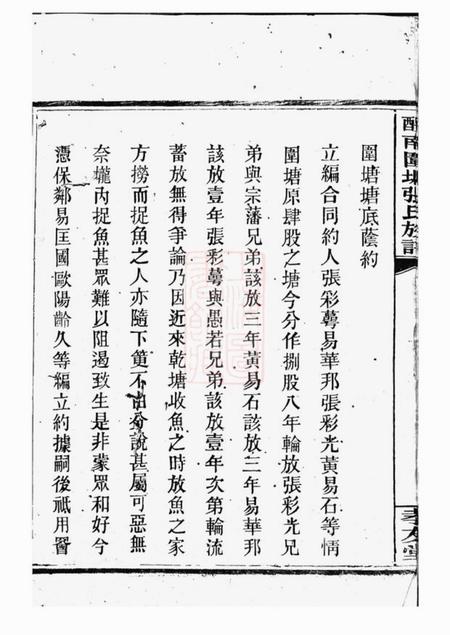 圍塘塘底蔭約
立編合同約人張彩蕚易華邦張彩光黃易石等情
圍塘原肆股之塘今分作捌股八年輪放張彩光兄
弟與宗藩兄弟該放三年黃易石該放三年易華邦
該放壹年張彩蕚與愚若兄弟該放壹年次第輪流
蓄放無得爭論乃因近來乾塘收魚之時放魚之家
方撈而捉魚之人亦隨下篢不由分說甚屬可惡無
奈壠內捉魚甚眾難以阻遏致生是非蒙眾和好今
憑保鄰易匡國歐陽齡久等編立約據嗣後祗用罾
醴南圍塘張氏族譜
孝友堂